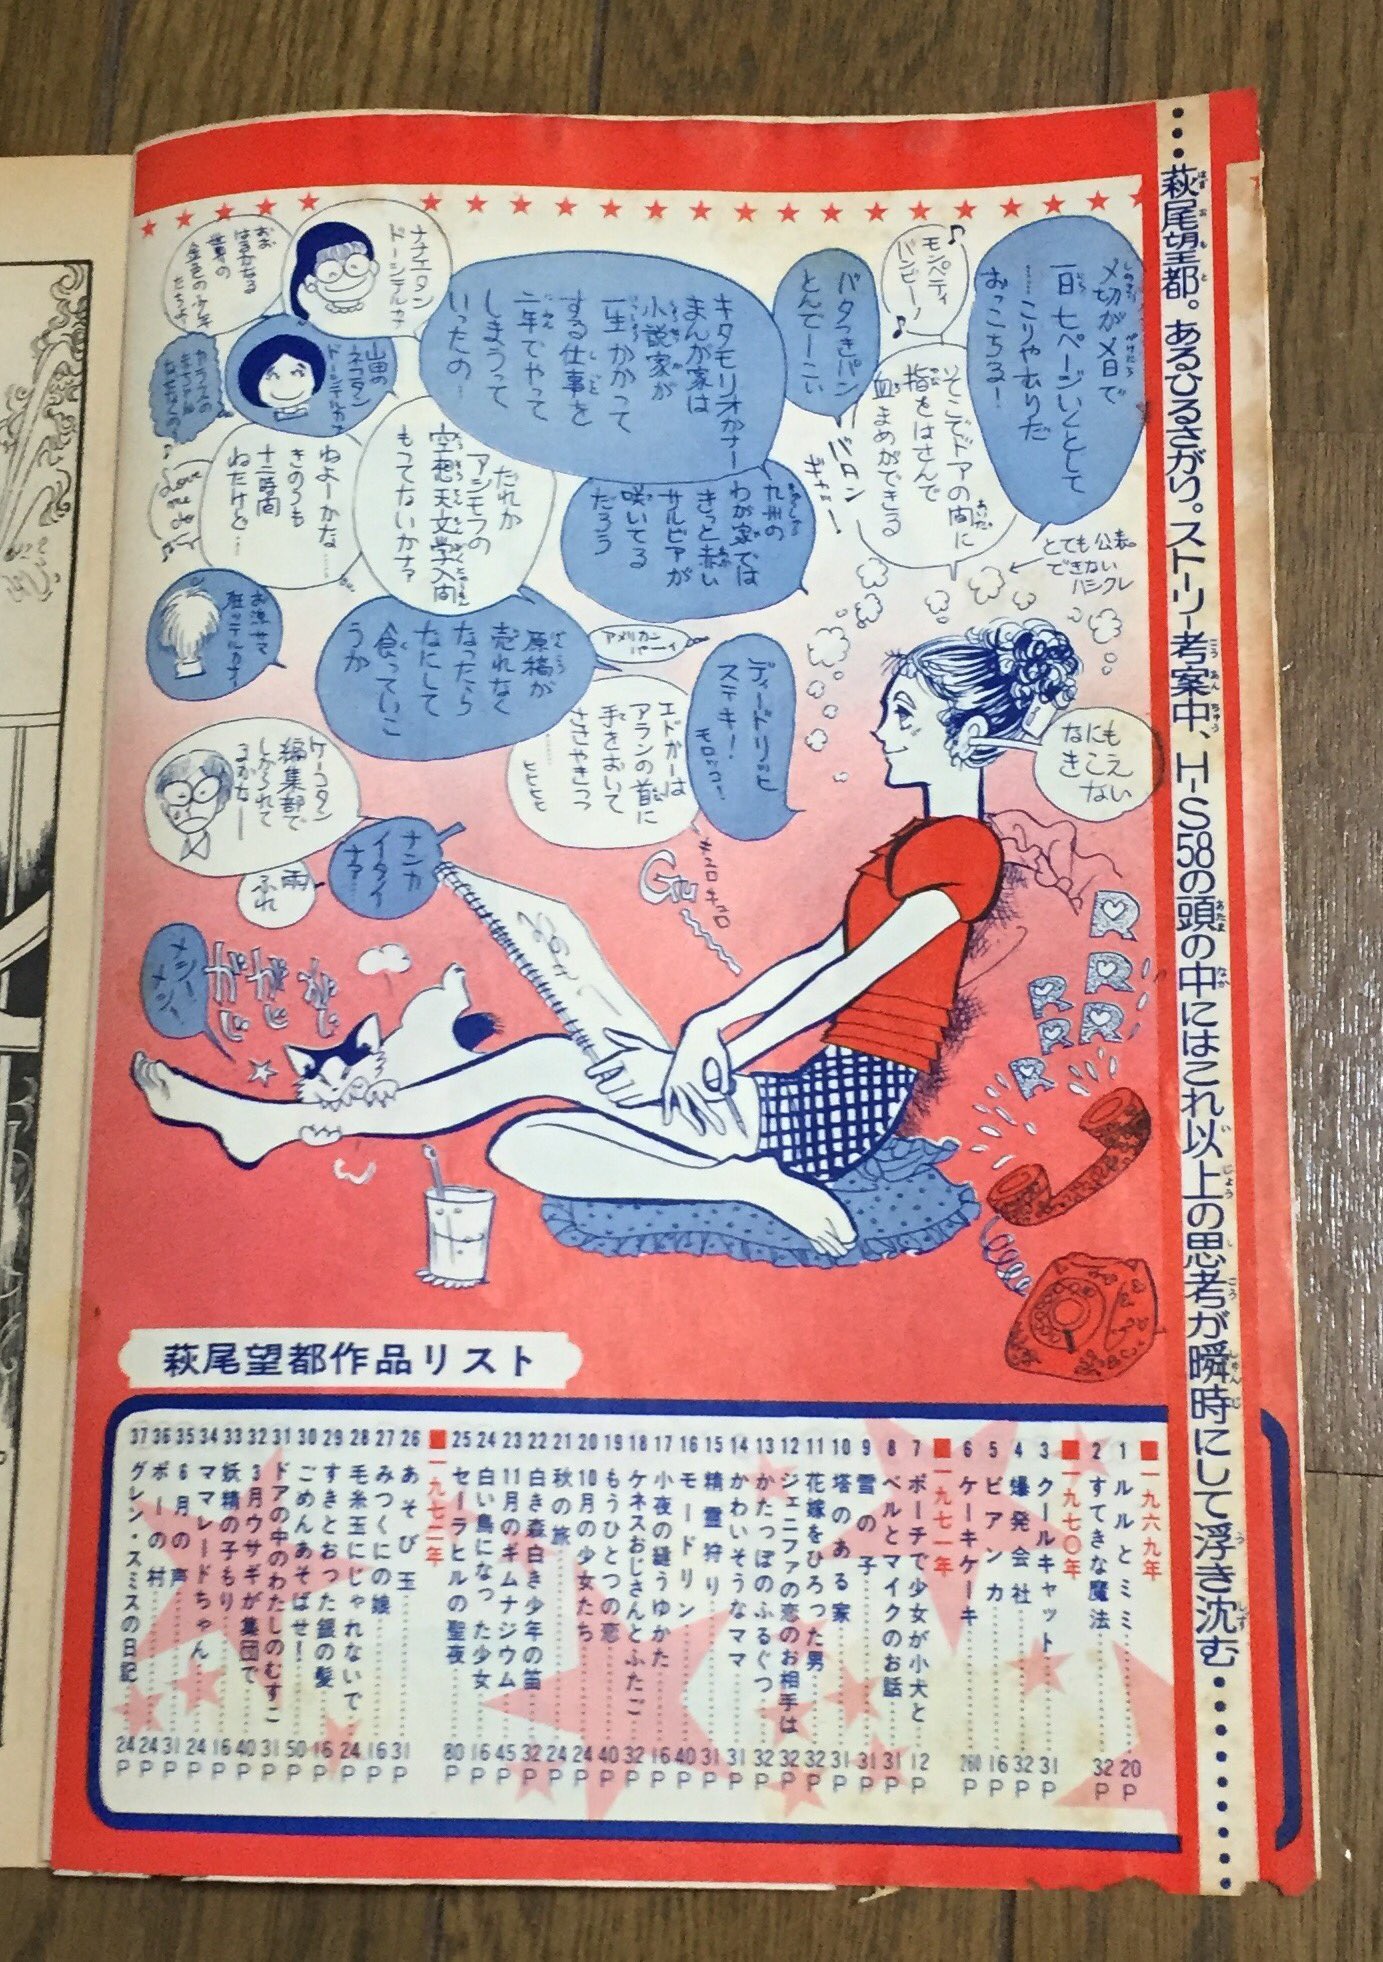 …萩尾望都。あるひるさがり。ストーリー考案中、H-S58の頭の中にはこれ以上の思考が瞬時にして浮き沈む……
〆切が〆日で
一日七ページいくとして
……こりゃむりだ
おっこちる！
モンペティ
バンビー！
そこでドアの間に
指をはさんで
血まめができる
バタつきパン
とんでーこい
バロン
ギャー！
キタモリオかナー
まんが家は
小説家が
一生かかって
する仕事を
二年でやって
しまうって
いったの
ナナエタン
おお
はるかなる
山田の
ネコタン
だれか
アシモフの
空想天文学入門
もってないかナァ
ねよーかな……
きのうも
十二時間
ねたけど……
九州の
わが家では
きっと赤い
サルビアが
咲いてる
だろう
とても公表
できない
ハシクレ
原稿が
売れなく
なったら
なにして
食っていこ
うか
アメリカン
ディードリッヒ
ステキ！
エドガーは
アランの首に
手をおいて
ささやきつつ
ヒヒヒヒ
なにも
きこえ
ない
ケーコタン
編集部で
しかられて
るかな——
雨
ふれ
ナンカ
イタイ
ナァ…
キョロキョロ
Guー
メシー
メシ
ガジ
ガジ
R
R
R
R
R
萩尾望都作品リスト
■一九六九年
1 ルルとミミ……20P
2 すてきな魔法……32P
■一九七〇年
3 クールキャット……31P
4 爆発会社……32P
5 ビアンカ……16P
6 ケーキケーキ……260P
■一九七一年
7 ポーチで少女が小犬と……12P
8 ベルとマイクのお話……31P
9 雪の子……31P
10 塔のある家……31P
11 花嫁をひろった男……32P
12 ジェニファの恋のお相手は……32P
13 かたっぽのふるぐつ……32P
14 かわいそうなママ……31P
15 精霊狩り……31P
16 モードリン……40P
17 小夜の縫うゆかた……16P
18 ケネスおじさんとふたご……32P
19 もうひとつの恋……40P
20 10月の少女たち……24P
21 秋の旅……24P
22 白き森白き少年の笛……32P
23 11月のギムナジウム……45P
24 白い鳥になった少女……16P
25 セーラヒルの聖夜……80P
■一九七二年
26 あそび玉……31P
27 みつくにの娘……16P
28 毛糸玉にじゃれないで……24P
29 すきとおった銀の髪……16P
30 ごめんあそばせ！……50P
31 ドアの中のわたしのむすこ……31P
32 3月ウサギが集団で……40P
33 妖精の子もり……16P
34 ママレードちゃん……24P
35 6月の声……31P
36 ポーの村……24P
37 グレン・スミスの日記……24P